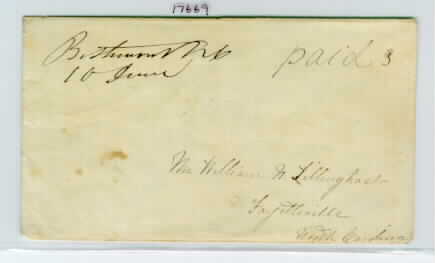 17669
10 June
paid 3
Mr William N Tillinghast
Fayetteville
North Carolina